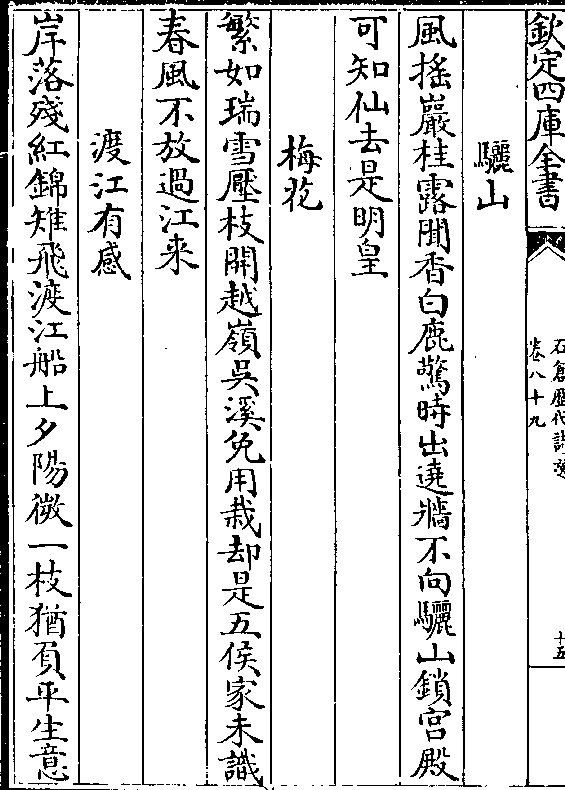 欽定四庫全書
石倉歷代詩選
卷八十九
十五
驪山
風搖巖桂露聞香白鹿驚時出遶牆不向驪山鎖宮殿
可知仙去是明皇
梅花
繁如瑞雪壓枝開越嶺吳溪免用栽却是五侯家未識
春風不放過江来
渡江有感
岸落殘紅錦雉飛渡江船上夕陽微一枝猶負平生意